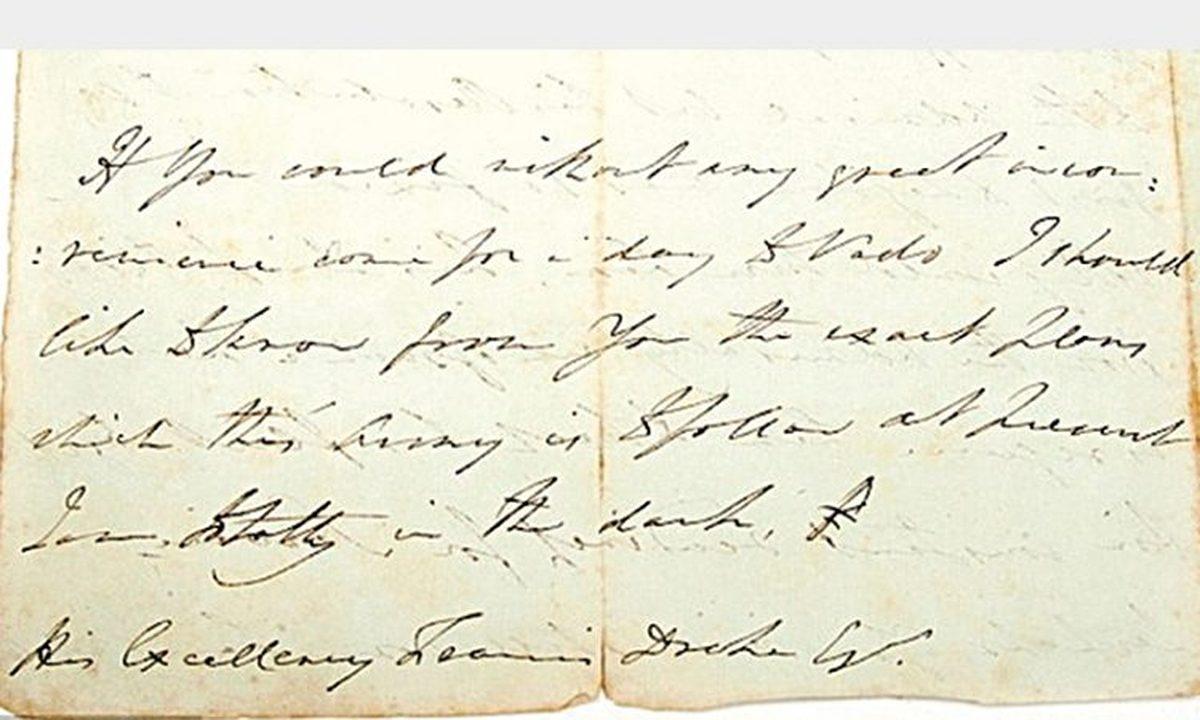 If You could without any great incon:
:venience come for a day to Vado I should
like to know from You the exact Plans
which this Army is to follow at Present
I am totally in the dark,
His Excellency Francis Drake Esqr.